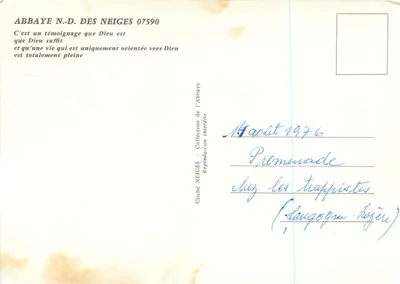 ABBAYE N.-D. DES NEIGES 07590
C'est un témoignage que Dieu est
que Dieu suffit
et qu'une vie qui est uniquement orientée vers Dieu
est totalement pleine
Cliché NEIGES - Collection de l'Abbaye
Reproduction interdite
14 août 1976
Promenade
chez les trappistes
(Langogne - Lozère)